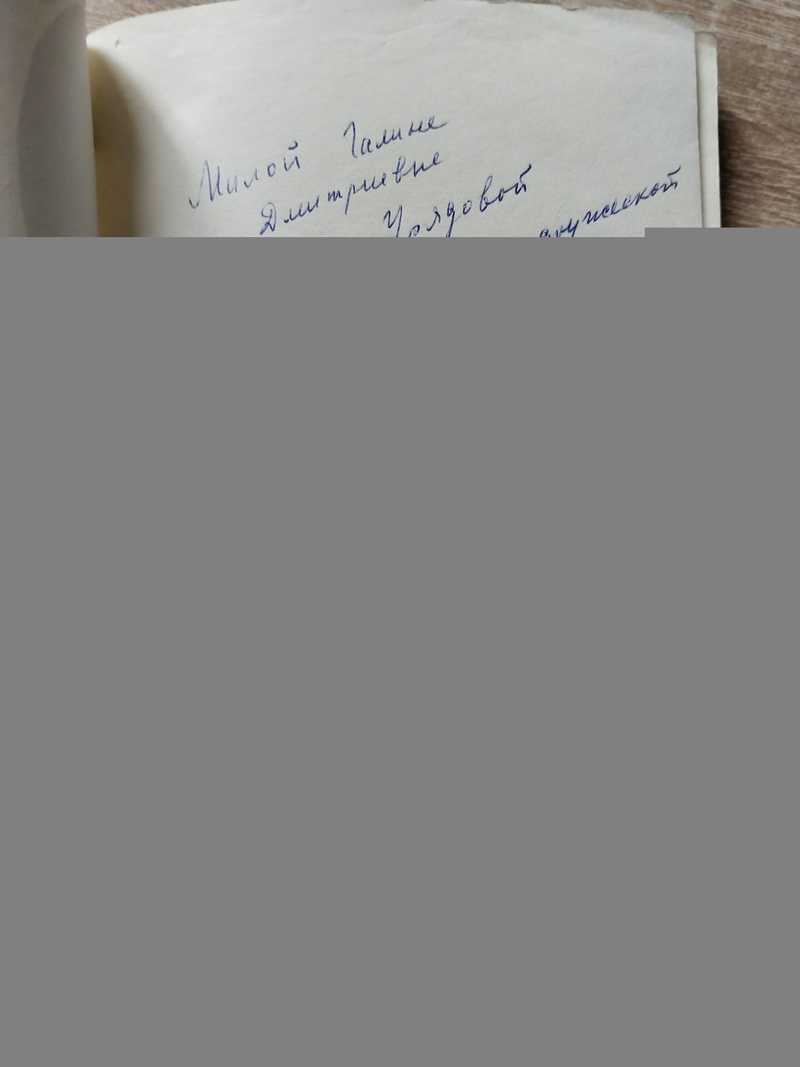 Милой Галине
Дмитриевне
Урядовой
дружеской